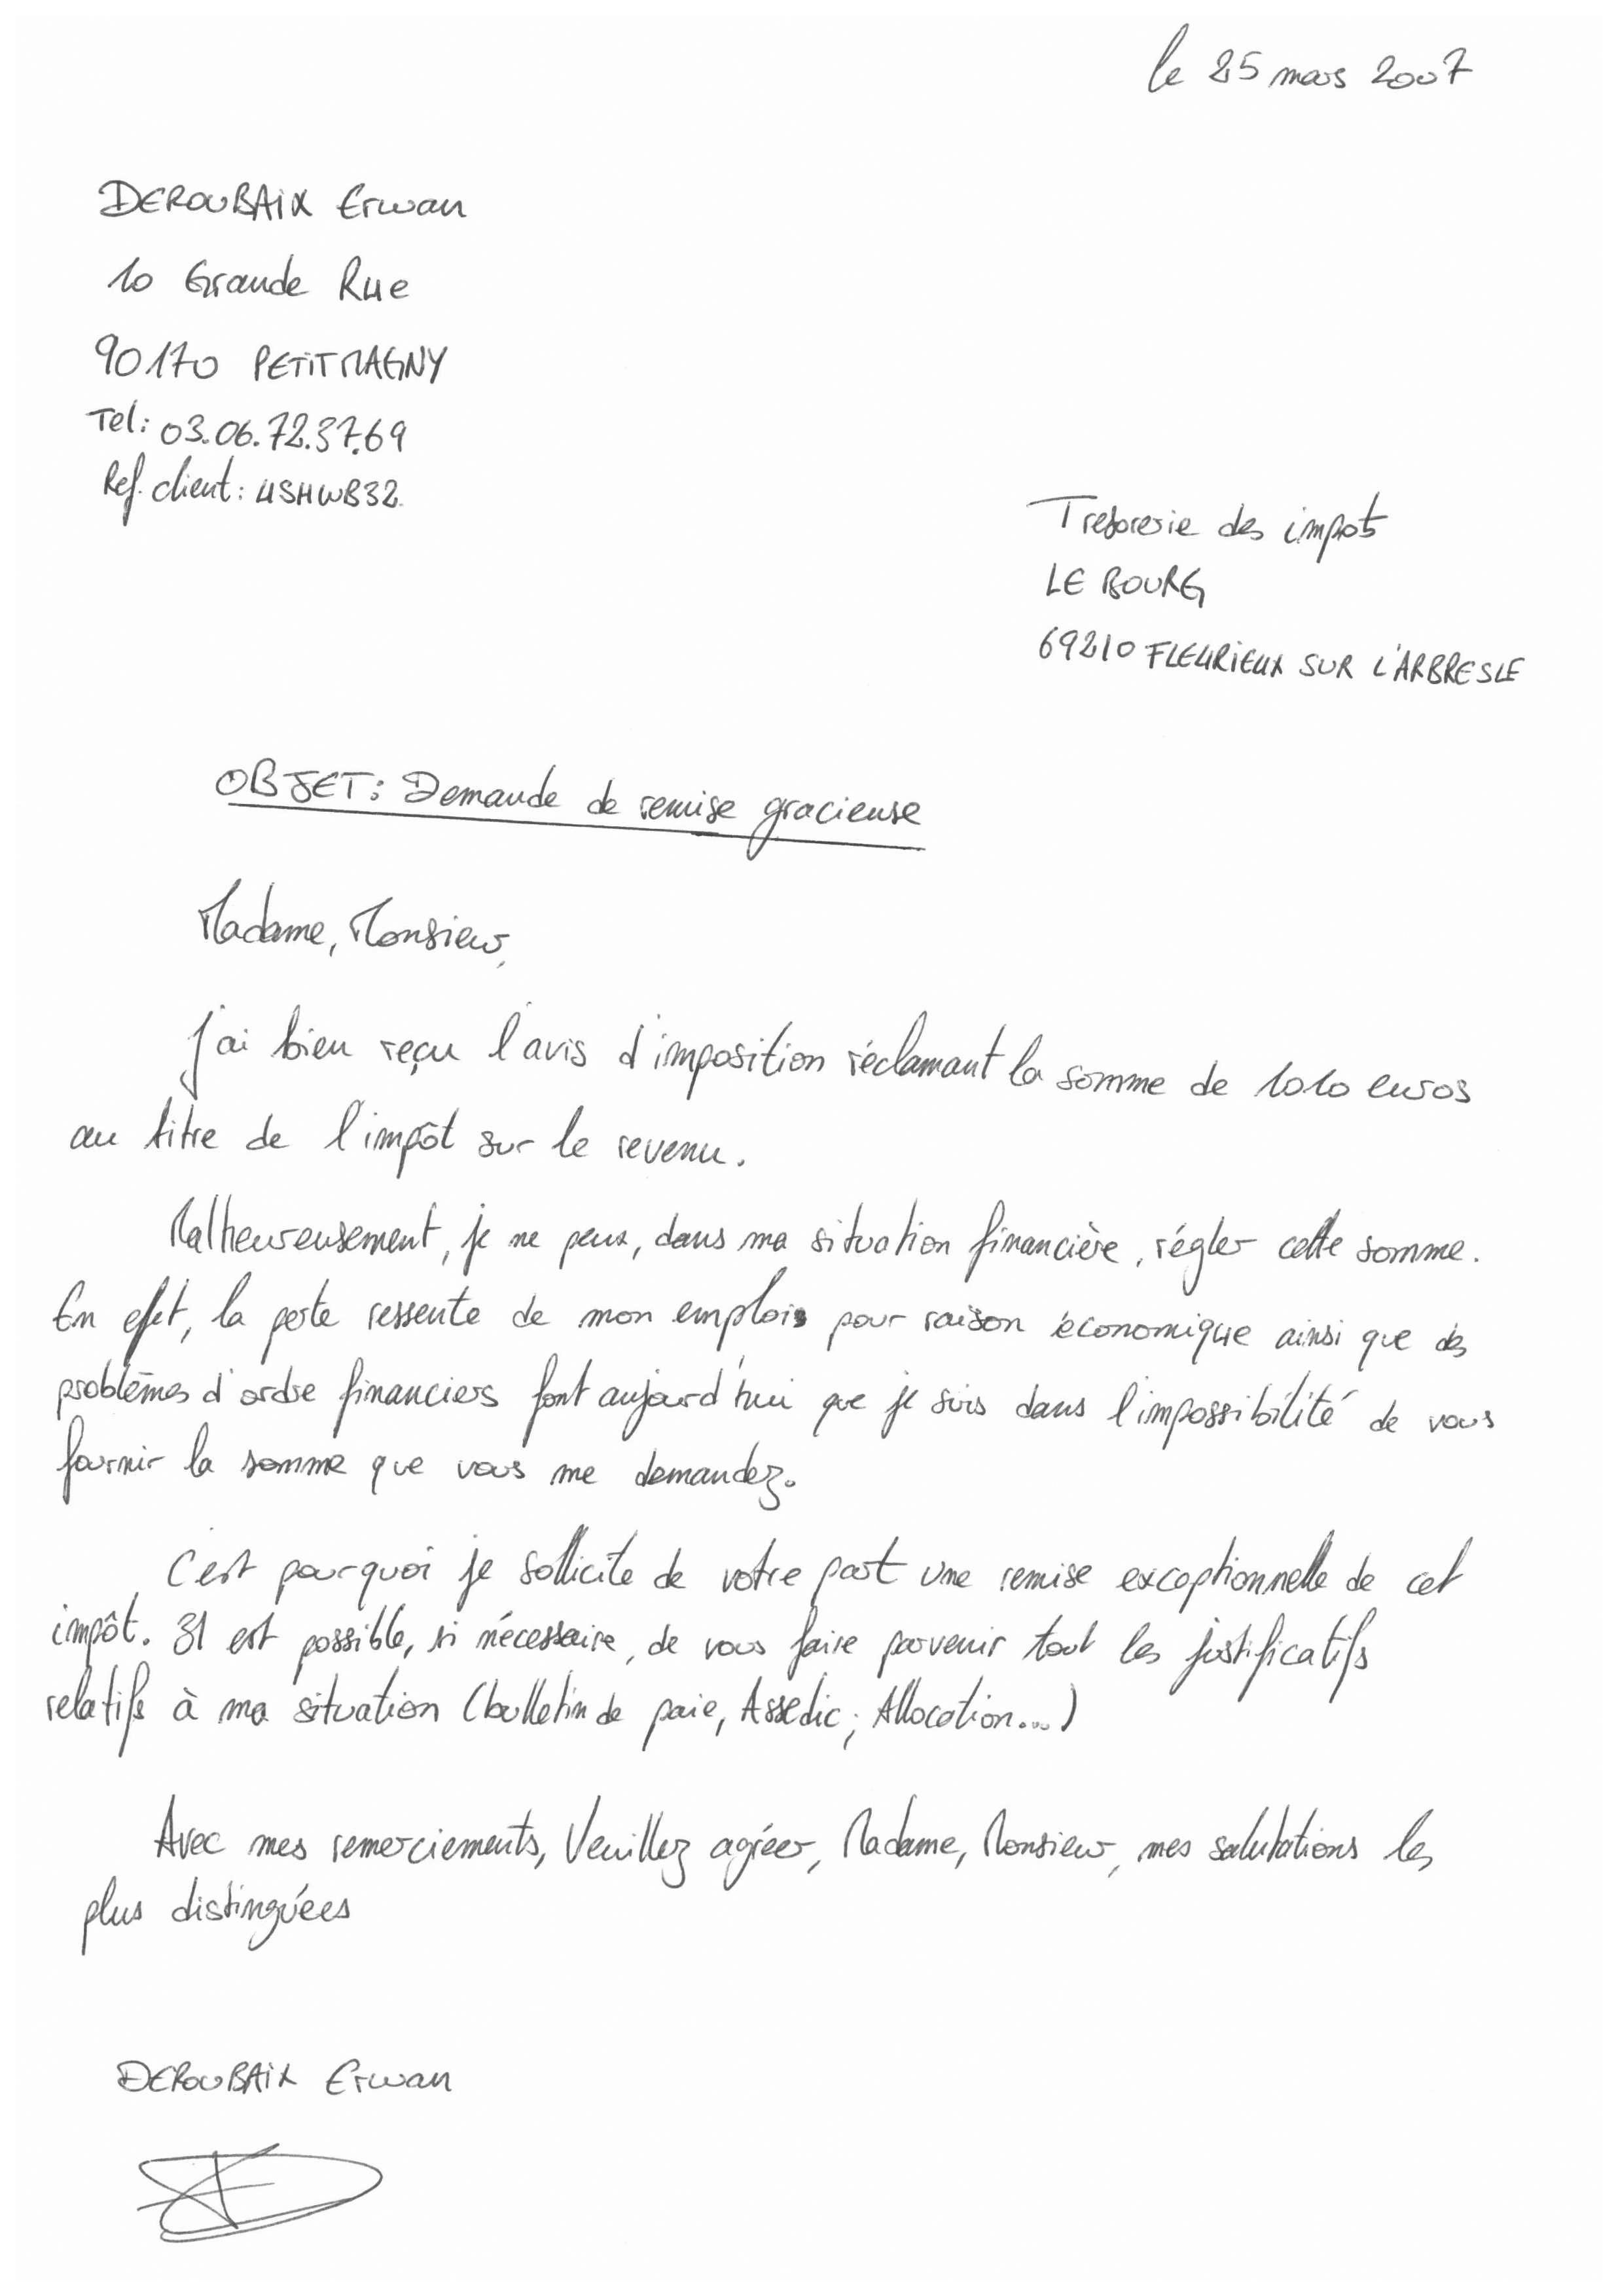 le 25 mars 2007
DEROUBAIX Erwan
10 Grande Rue
90170 PETITMAGNY
Tel: 03.06.72.37.69
Ref. client: USHWB32
Tresorerie des impots
LE BOURG
69210 FLEURIEUX SUR L'ARBRESLE
OBJET: Demande de remise gracieuse
Madame, Monsieur,
J'ai bien reçu l'avis d'imposition réclamant la somme de 1010 euros
au titre de l'impôt sur le revenu.
Malheureusement, je ne peux, dans ma situation financière, régler cette somme.
En effet, la perte ressente de mon emplois pour raison économique ainsi que des
problèmes d'ordre financiers font aujourd'hui que je suis dans l'impossibilité de vous
fournir la somme que vous me demandez.
C'est pourquoi je sollicite de votre part une remise exceptionnelle de cet
impôt. Il est possible, si nécessaire, de vous faire parvenir tout les justificatifs
relatifs à ma situation (bulletin de paie, Assedic, Allocation...)
Avec mes remerciements, Veuillez agréer, Madame, Monsieur, mes salutations les
plus distinguées
DEROUBAIX Erwan